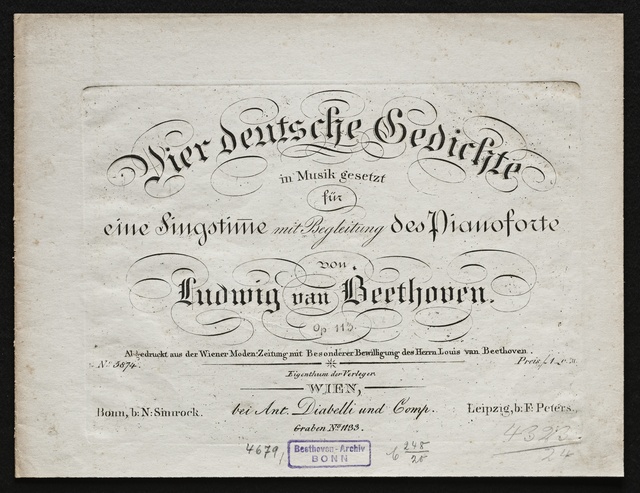 Vier deutsche Gedichte
in Musik gesetzt
für
eine Singstim̅e mit Begleitung des Pianoforte
von
Ludwig van Beethoven.
Op 113
Abgedruckt aus der Wiener Moden-Zeitung mit Besonderer Bewilligung des Herrn Louis van Beethoven.
No. 5874.
Preis f. 1
Eigenthum der Verleger.
WIEN,
Bonn, b: N: Simrock. bei Ant. Diabelli und Comp. Leipzig, b: F: Peters.
Graben No. 1133.
4323
24
4679/
Beethoven-Archiv
BONN
C 248/20